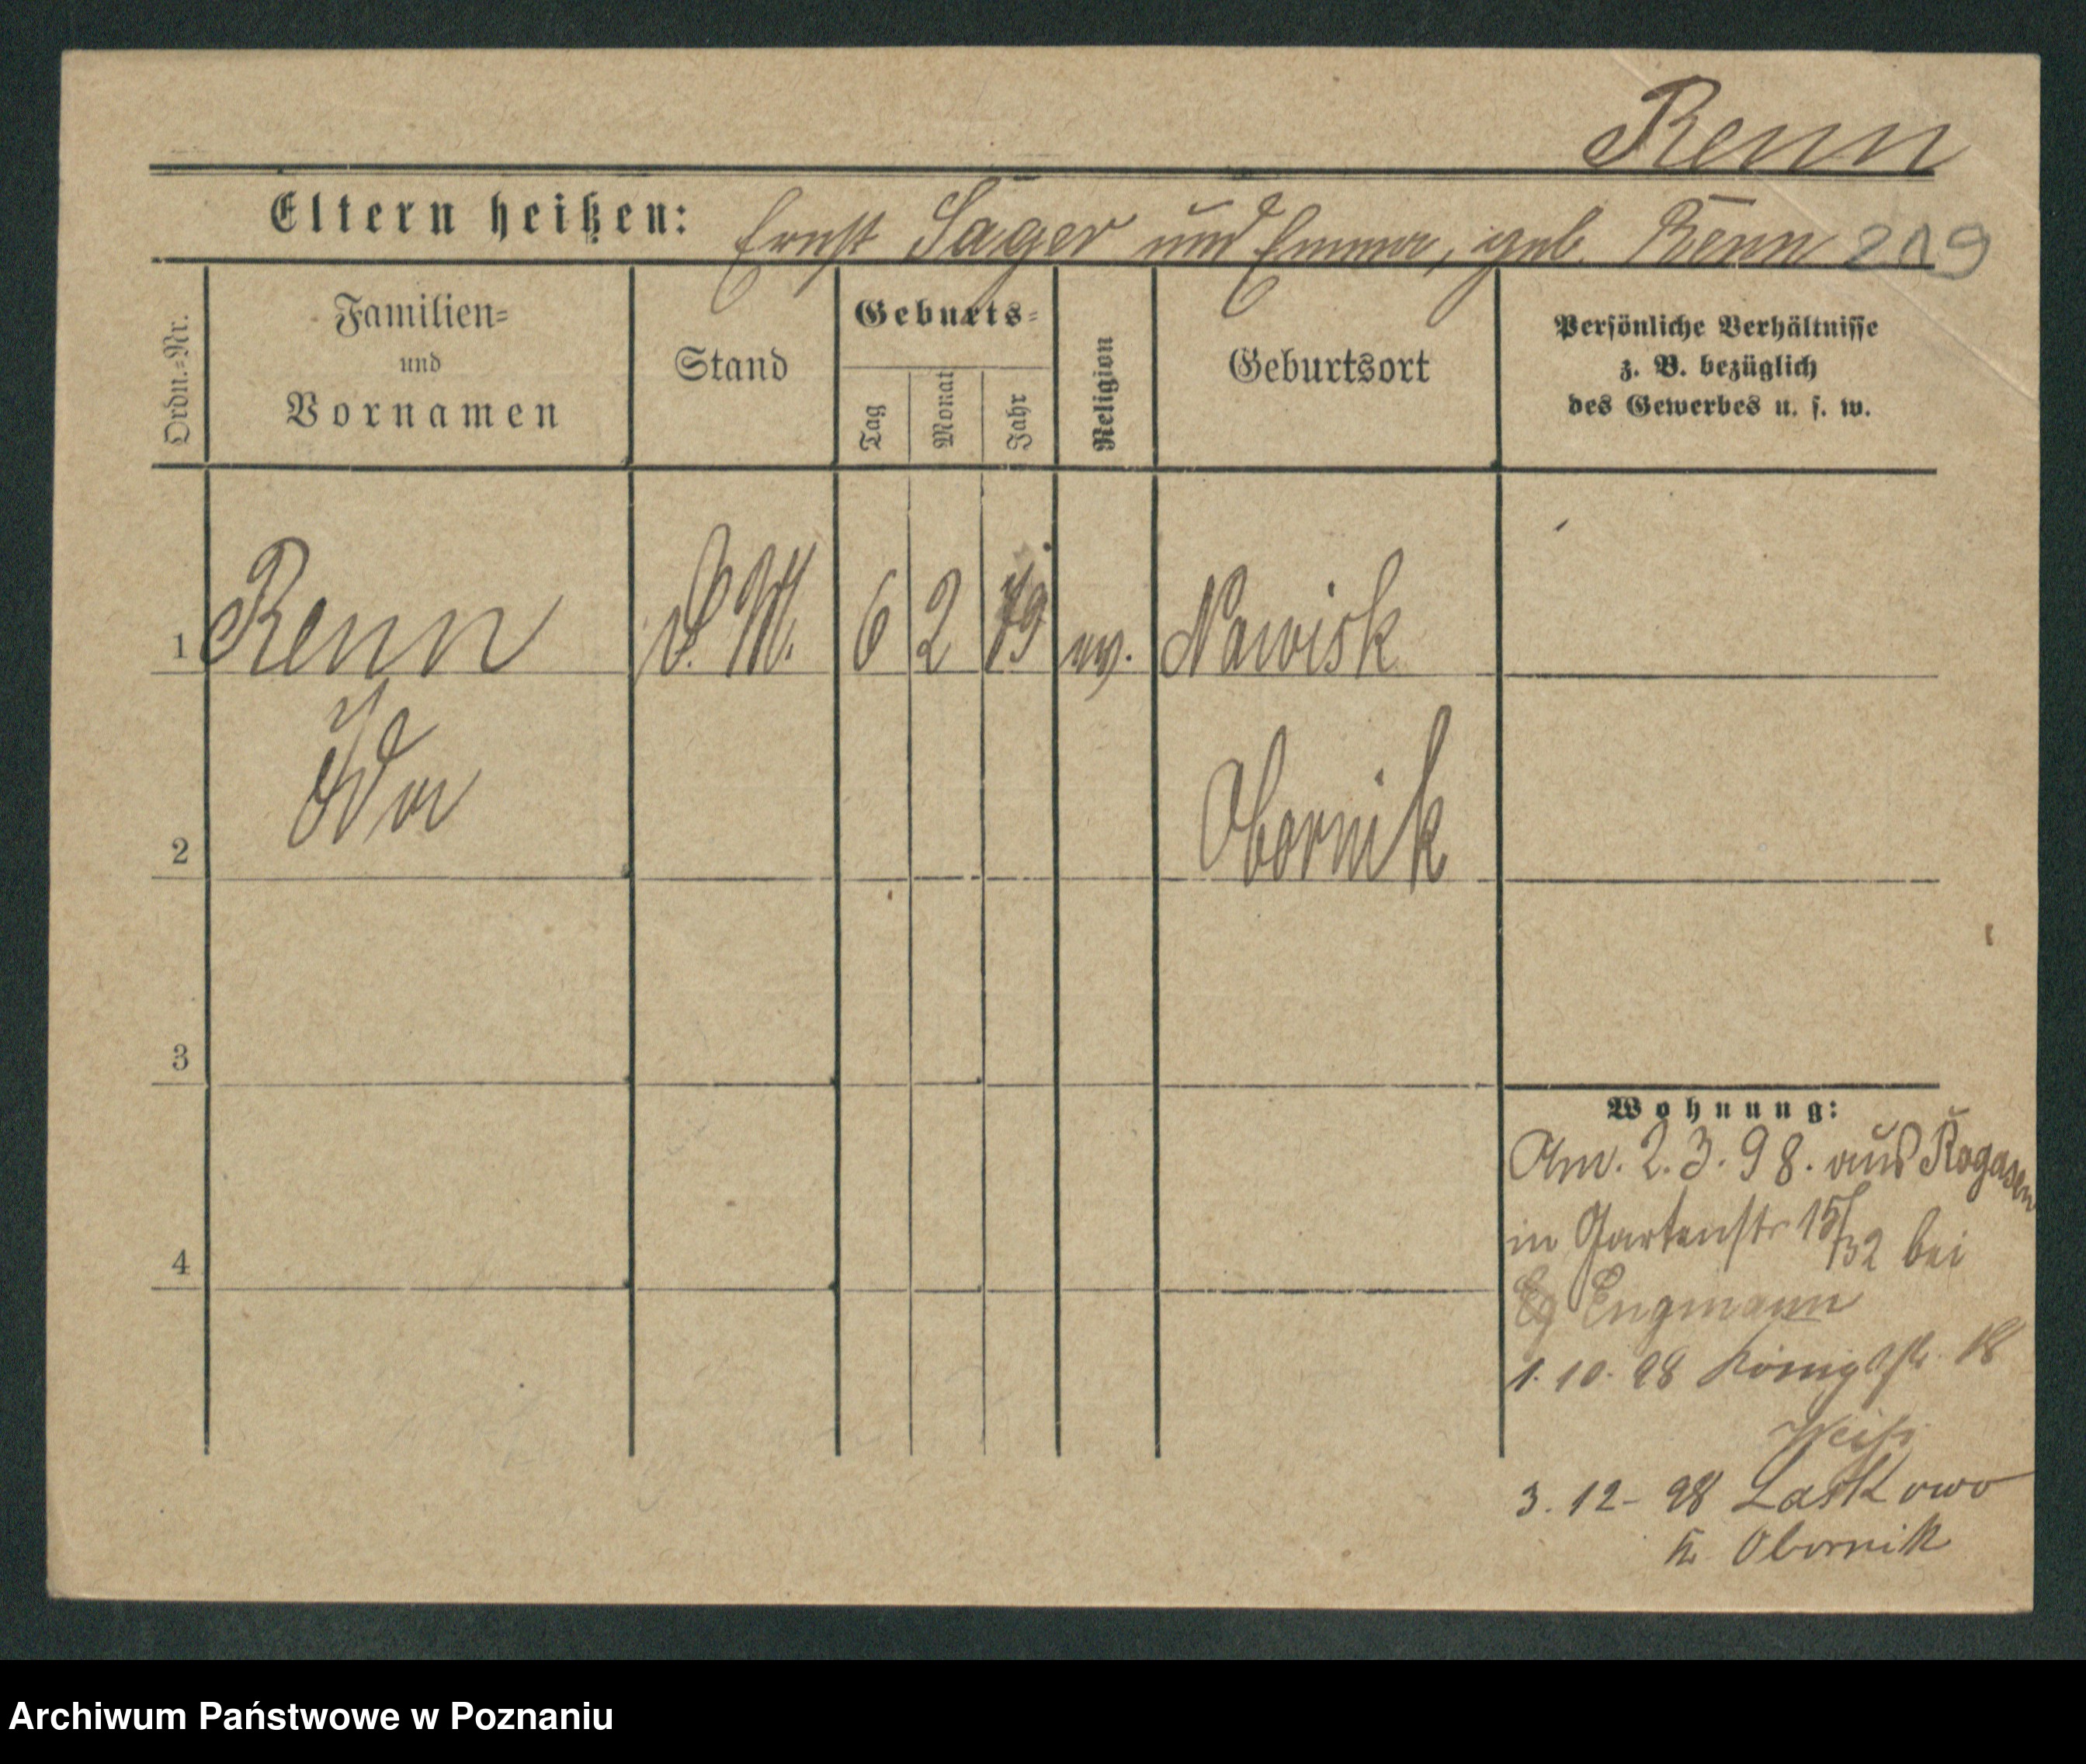 Renn
Eltern heißen: Ernst Sager und Emma, geb. Renn 219
Ordn.=Nr.
Familien=
und
Vornamen
Stand
Geburts=
Tag
Monat
Jahr
Religion
Geburtsort
Persönliche Verhältnisse
z. B. bezüglich
des Gewerbes u. s. w.
1 Renn D. M. 6 2 79 ev. Nawisk
2 Ida Obornik
3
4
Wohnung:
Am. 2.3.98. aus Rogasen
in Gartenstr 15/32 bei
Engmann
1.10.98 Königstr. 18
Weiß
3.12-98 Laskowo
K. Obornik
Archiwum Państwowe w Poznaniu